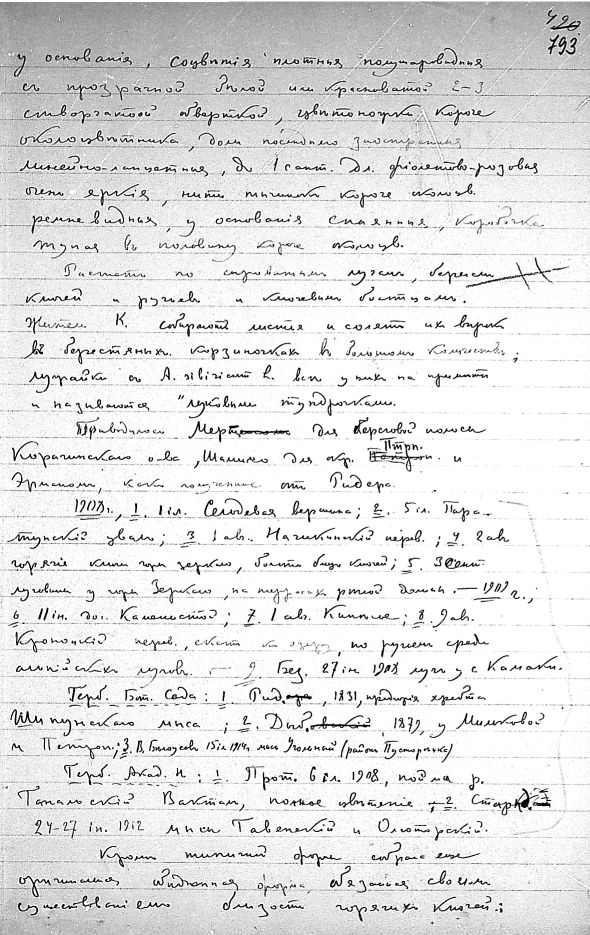 420
793
у основанія, соцвѣтія плотныя полушаровидныя
съ прозрачной бѣлой или красноватой 2-3
створчатой оберткой, цвѣтоножки короче
околоцвѣтника, доли постепенно заостренныя
линейно-ланцетныя, до 1 сант. дл. фіолетово-розовыя
очень яркія, нити тычинокъ короче околоцв.
ремневидныя, у основанія спаянныя, коробочка
тупая въ половину короче околоцв.
Растетъ по сыроватымъ лугамъ, берегамъ
ключей и ручьевъ и ключевымъ болотцамъ.
Жители К. собираютъ листья и солятъ ихъ впрокъ
въ берестяныхъ корзиночкахъ въ большомъ количествѣ;
лужайки съ A. sibiricum L. всѣ у нихъ на примѣтѣ
и называются "луковыми тундрочками.
Приводится Мертенсомъ для береговой полосы
Карагинскаго о-ва, Шамиссо для окр. Птрп. и
Эрманомъ, какъ полученное отъ Ридера.
1908 г., 1. 1 іл. Сельдевая вершина; 2. 5 іл. Пара-
тунскій увалъ; 3. 1 ав. Начикинскій перев.; 4. 2 ав.
горячіе ключи горы зеркало, болота близъ ключей; 5. 3 сент.
луговина у горы Зеркало, на - 1909 г.;
6. 11 ін. дол. Каменистой; 7. 1 авг. Кипелые; 8. 9 ав.
Кроноцкій перев., скатъ къ озеру, по ручьямъ среди
альпійскихъ луговъ. - 9 Без. 27 ін. 1908 лугъ у с. Камаки.
Герб. Бот. Сада: 1 Рид., 1831, предгорія хребта
Шипунскаго мыса; 2. Дыбовскій, 1879, у Мильковой
и Петроп.; 3. В. Бѣлоусовъ 15 іл. 1914 г. мысъ Угольный (районъ Пусторѣцка)
Герб. Акад. Н.: 1. Прот. 6 іл. 1908, пойма р.
Вактал, полное цвѣтеніе, - 2. Старк
24-27 ін. 1912 мысы Говенскій и Олюторскій.
Кромѣ типичной формы собрана еще
оригинальная форма, обязанная своимъ
существованіемъ близости горячихъ ключей: